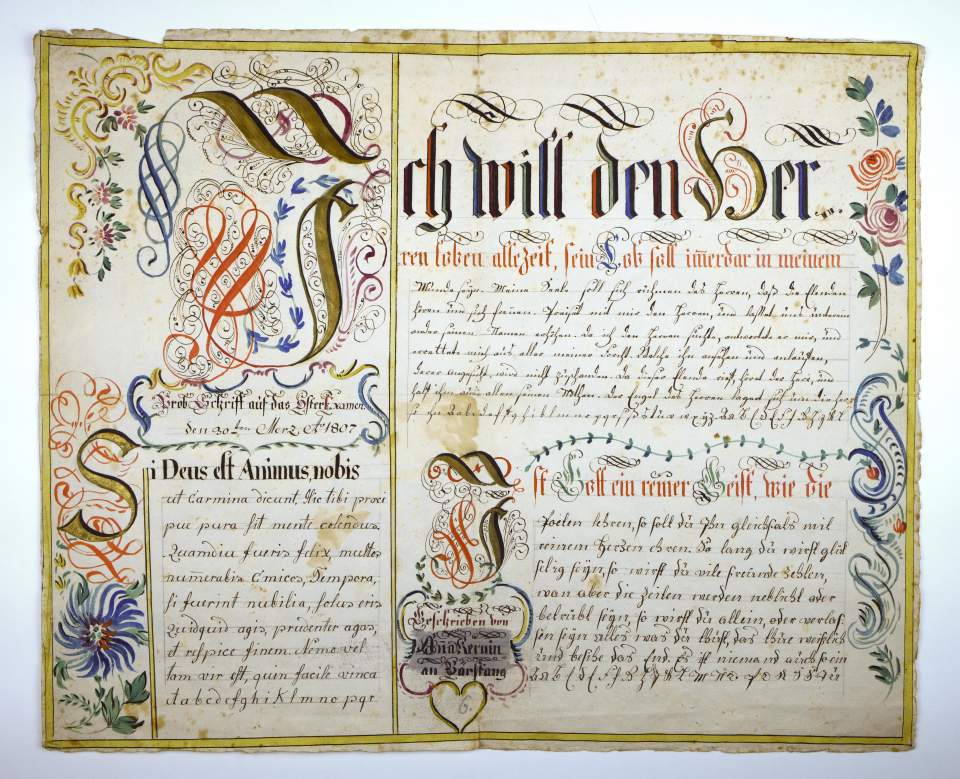 Ich will den Her...
ren loben allezeit, sein Lob soll im̅erdar in meinem
Munde seyn. Meine Seele soll sich rühmen des Herren, daß die Elenden
hören und sich freuen. Preiset mit mir den Herren, und lasset uns
ander seinen Namen erhöhen. da ich den Herren suchte, antwortete er mir, und
errettete mich aus aller meiner Furcht. Welche ihn ansehen und anlaufen,
derer angesicht wird nicht zuschanden. da dieser Elende rief, höret der Herr, und
halff ihm aus allen seinen Nöthen. Der Engel des Herren lagert sich um die her
Prob Schrift auf das Osterexamen
den 30ten Merz Ao 1807
Si Deus est Animus, nobis
ut Carmina dicunt, Hic tibi preci
pue pura sit mente colendus.
Quamdiu fueris felix, multos
num̅erabis Amicos, Tempora,
si fuerint nubilia, solus eris
Quidquid agis, prudenter agas,
et respice finem. Nemo vel
tam vir est, quin facile vinca
t a b c d e f g h i K l m n o p q r
Ist Gott ein reiner Geist, wie die
Zeilen lehren, so solt du Ihn gleichfals mit
reinem Herzen ehren. So lang du wirst glük
selig seyn, so wirst du vile freünde zehlen,
wan aber die Zeiten werden neblicht oder
betrübt seyn, so wirst du allein, oder verlas
sen seyn Alles was du thust, das thue weißlich
und besihe das End. Es ist niemand auch so ein
Geschrieben von
Ana Kernin
an Barstang
6.